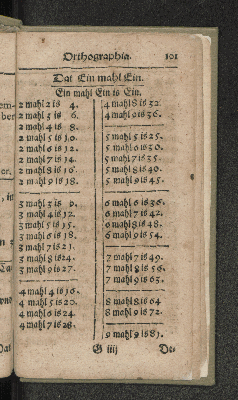 Orthographia. 101
Dat Ein mahl Ein.
Ein mahl Ein is Ein.
2 mahl 2 is 4.
2 mahl 3 is 6.
2 mahl 4 is 8.
2 mahl 5 is 10.
2 mahl 6 is 12.
2 mahl 7 is 14.
2 mahl 8 is 16.
2 mahl 9 is 18.
3 mahl 3 is 9.
3 mahl 4 is 12.
3 mahl 5 is 15.
3 mahl 6 is 18.
3 mahl 7 is 21.
3 mahl 8 is 24.
3 mahl 9 is 27.
4 mahl 4 is 16.
4 mahl 5 is 20.
4 mahl 6 is 24.
4 mahl 7 is 28.
4 mahl 8 is 32.
4 mahl 9 is 36.
5 mahl 5 is 25.
5 mahl 6 is 30.
5 mahl 7 is 35.
5 mahl 8 is 40.
5 mahl 9 is 45.
6 mahl 6 is 36.
6 mahl 7 is 42.
6 mahl 8 is 48.
6 mahl 9 is 54.
7 mahl 7 is 49.
7 mahl 8 is 56.
7 mahl 9 is 63.
8 mahl 8 is 64
8 mahl 9 is 72.
9 mahl 9 is 81.
G iiij De-